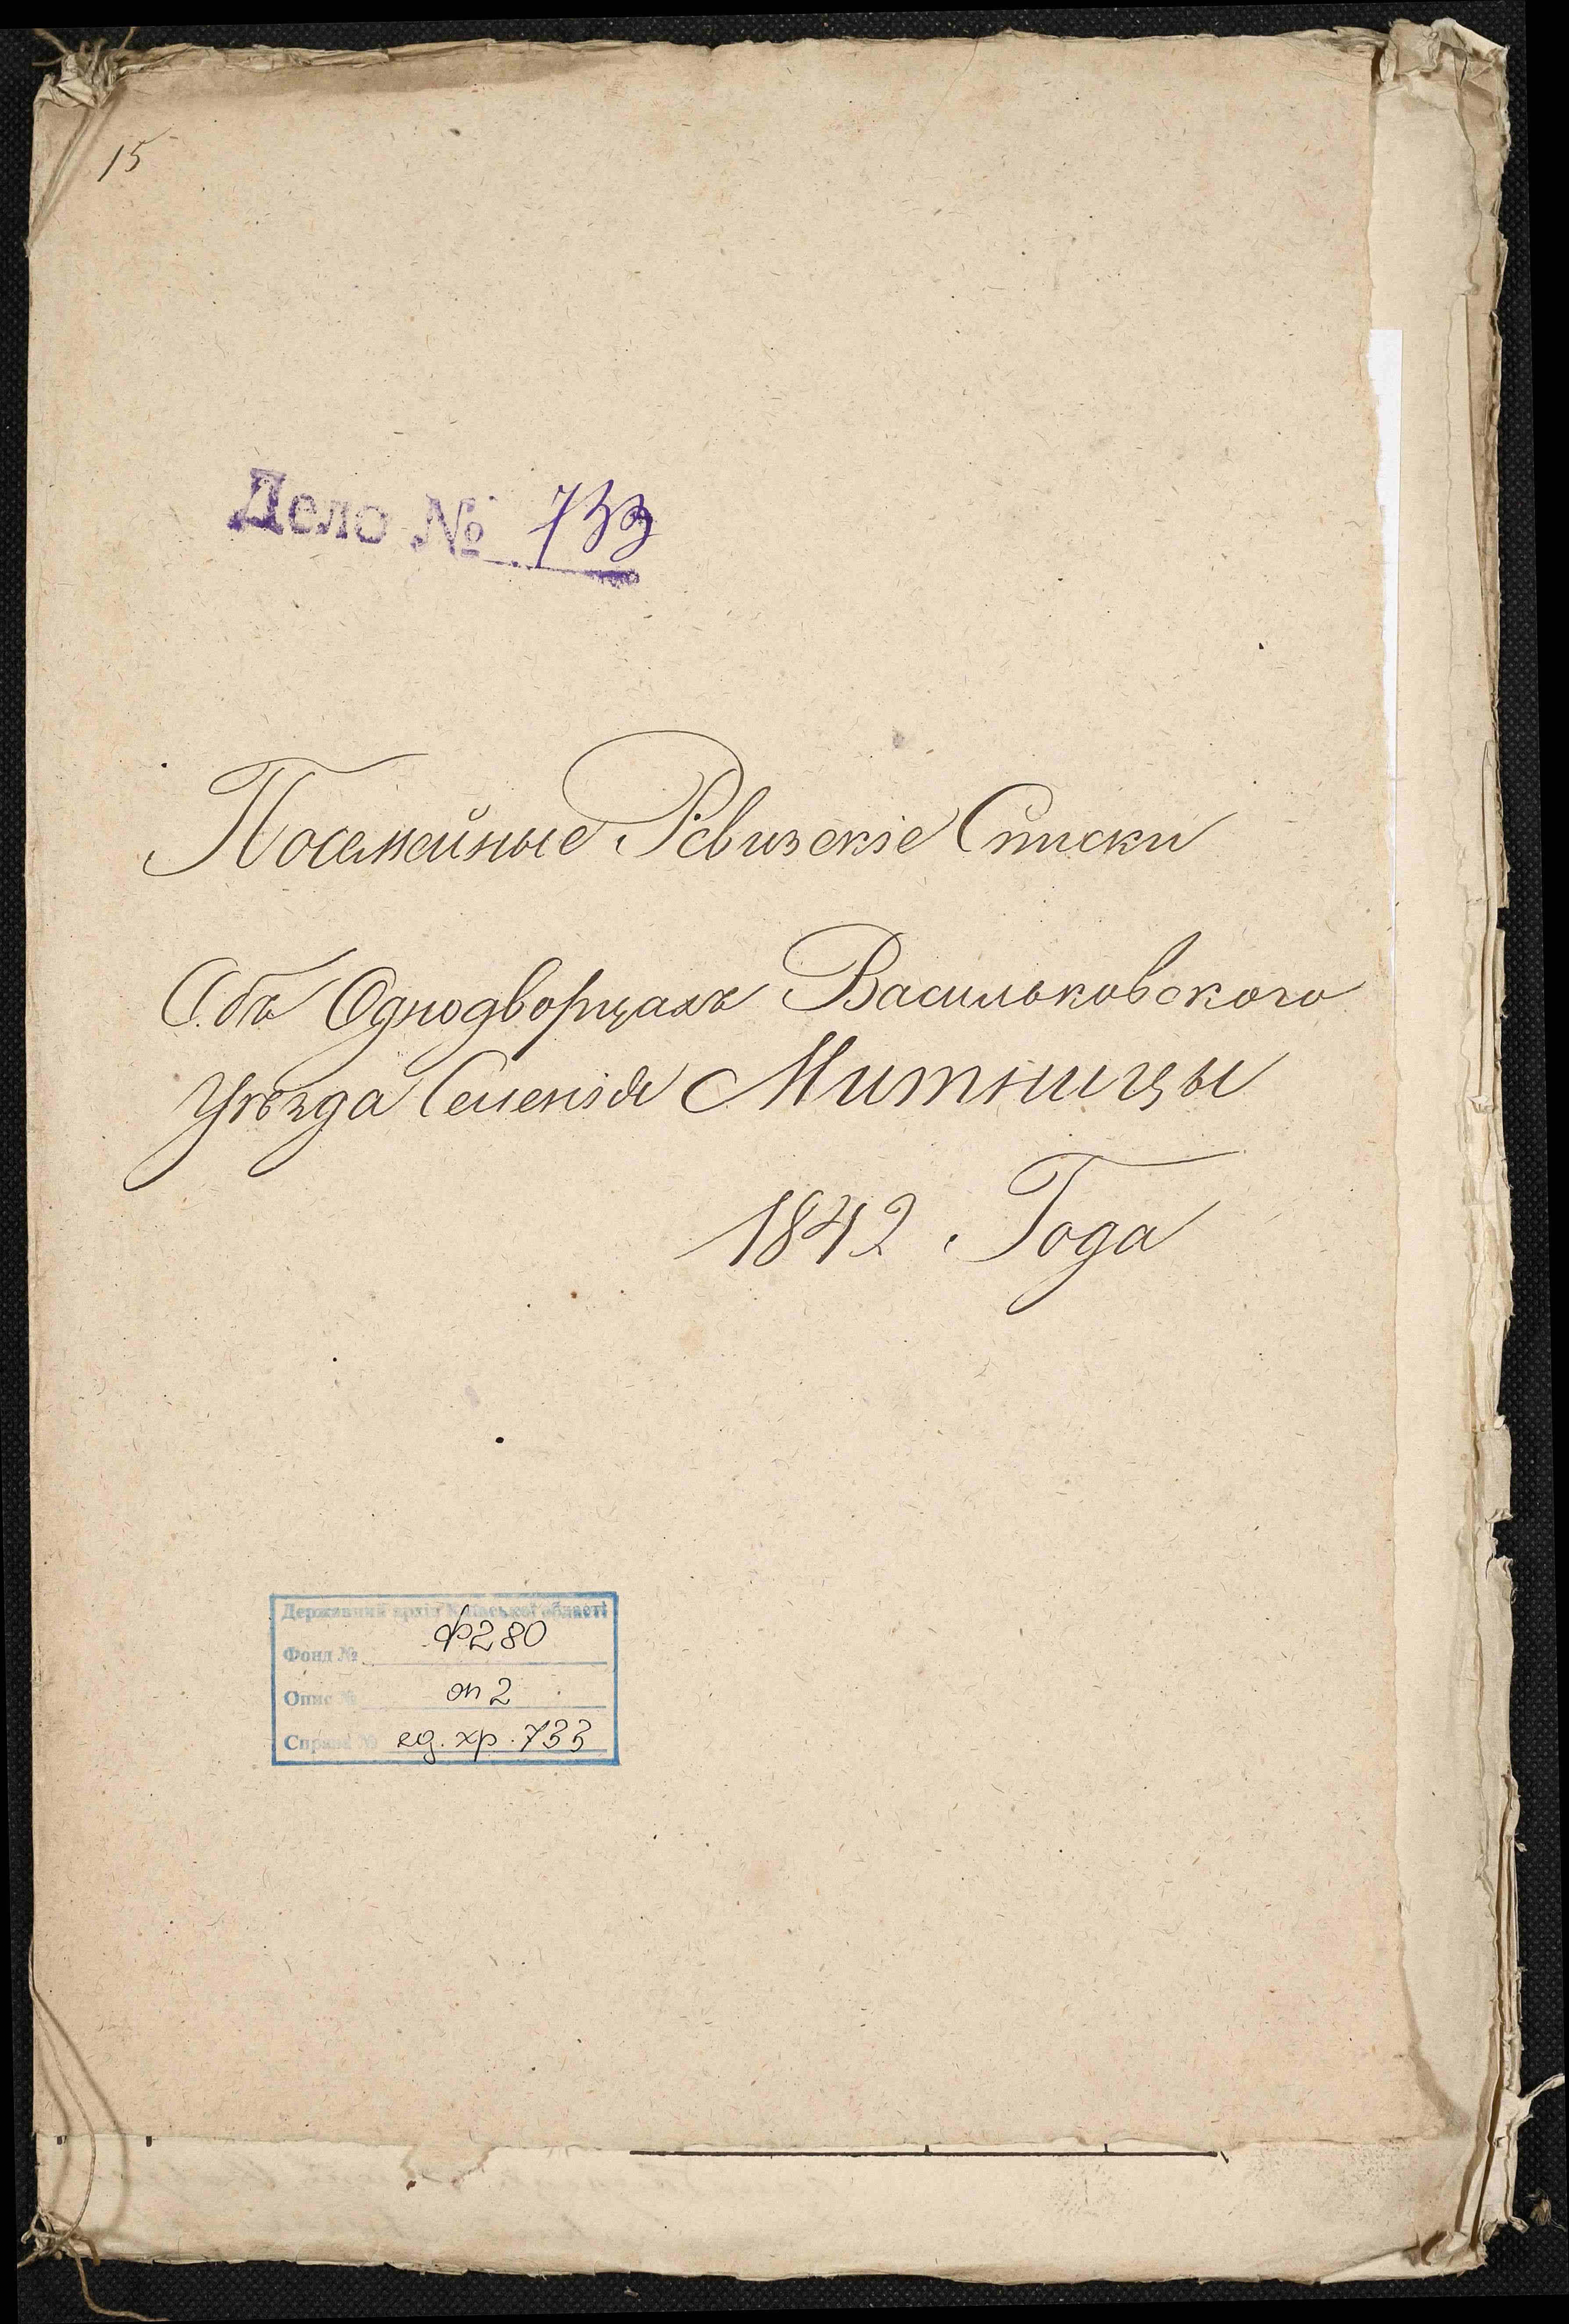 15
Дело № 733
Посемейные Ревизскіе Списки
Объ Однодворцахъ Васильковского
Уѣзда Селенія Митницы
1842 Года
Державний архів Київської області
Фонд № Ф280
Опис № оп 2
Справа № ед. хр. 733